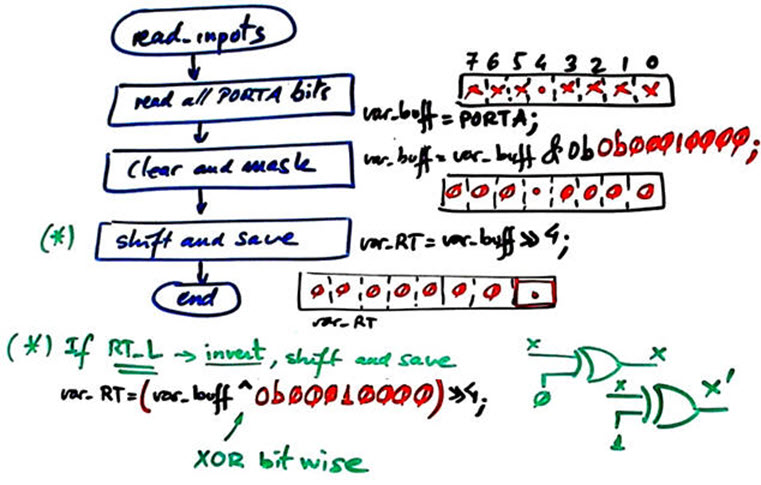 read_inputs
7 6 5 4 3 2 1 0
x x x . x x x x
read all PORTA bits
var_buff = PORTA;
Clear and mask
var_buff = var_buff & 0b 0b00010000;
0 0 0 . 0 0 0 0
(*) shift and save
var_RT = var_buff >> 4;
end
0 0 0 0 0 0 0 .
var_RT
(*) If RT_L → invert, shift and save
var_RT = (var_buff ^ 0b00010000) >> 4;
XOR bitwise
x
x
0
x
x'
1